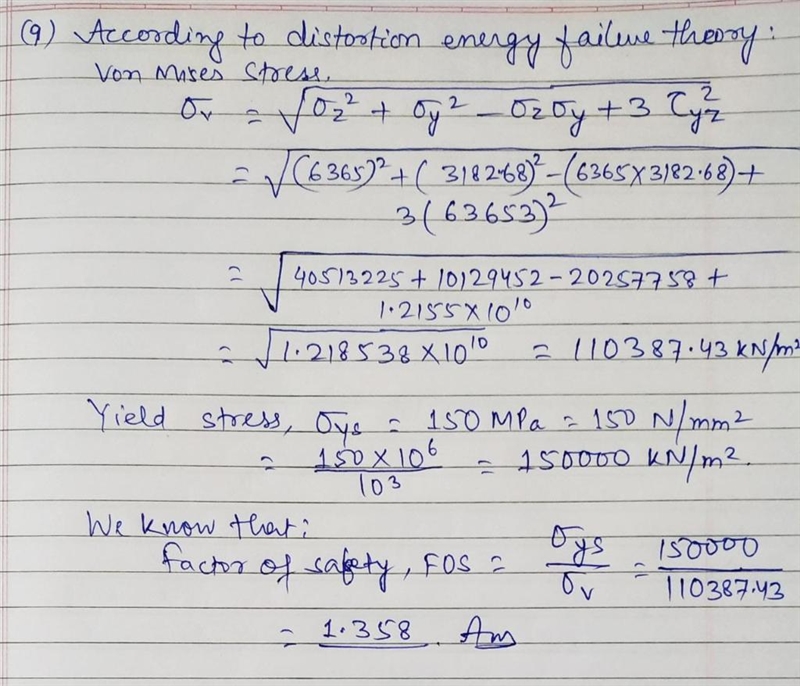 (9) According to distortion energy failure theory:
Von Mises Stress,
σv = √σz² + σy² - σzσy + 3 τyz²
= √(6365)² + (3182.68)² - (6365×3182.68) +
3(63653)²
= √40513225 + 10129452 - 20257758 +
1.2155×10¹⁰
= √1.218538×10¹⁰ = 110387.43 KN/m²
Yield stress, σys = 150 MPa = 150 N/mm²
= 150×10⁶/10³ = 150000 KN/m².
We know that:
factor of safety, FOS = σys/σv = 150000/110387.43
= 1.358. Ans